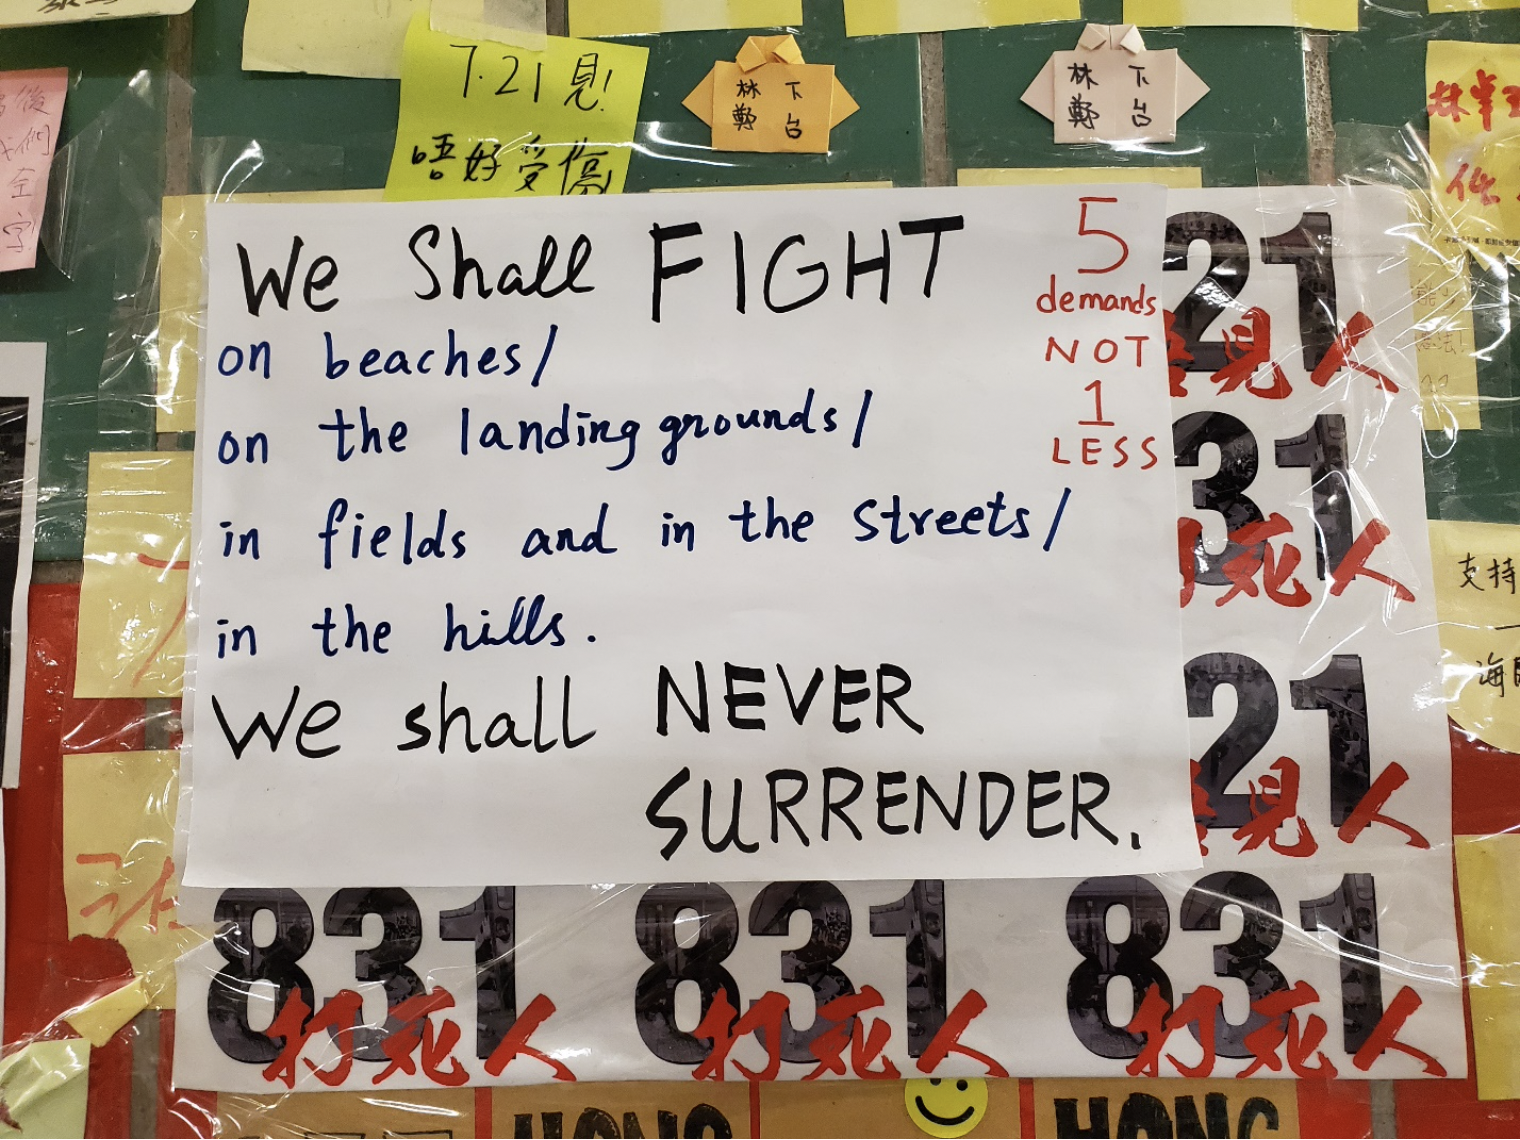 7.21 見!
唔好受傷
林鄭
下台
林鄭
下台
We Shall FIGHT
on beaches/
on the landing grounds/
in fields and in the streets/
in the hills.
We shall NEVER
SURRENDER.
5
demands
NOT
1
LESS
21
見人
31
死人
21
見人
831
打死人
831
打死人
831
打死人
支持
HONG